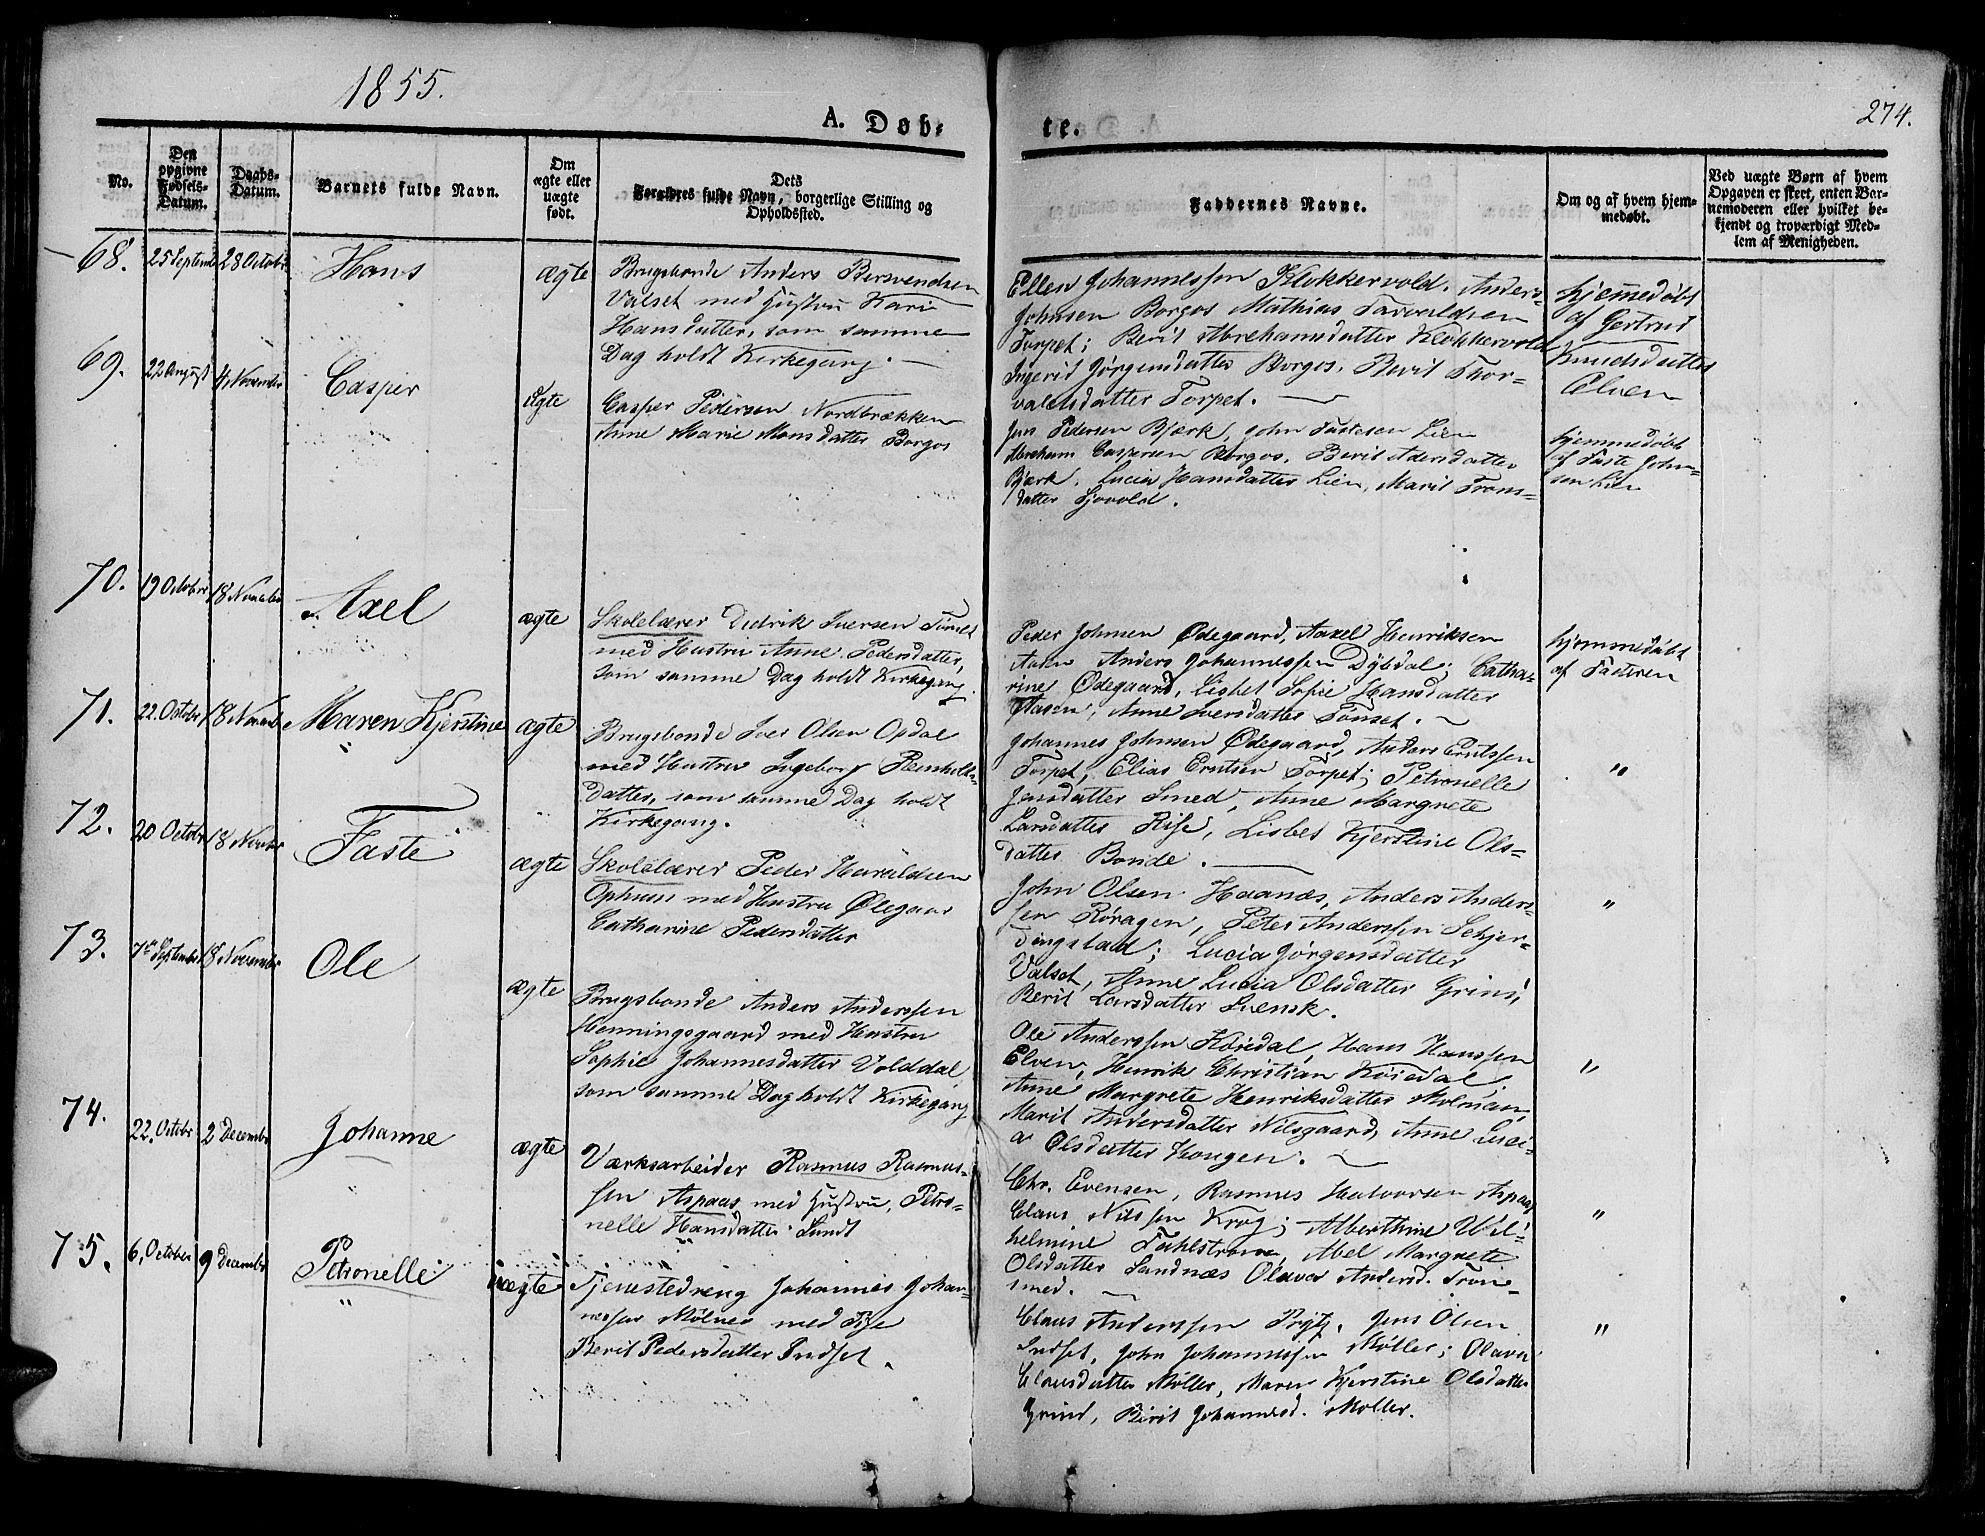 1855.
274.
A. Døb-
te.
No.
Den opgivne Fødsels-Datum.
Daabs-Datum.
Barnets fulde Navn.
Om ægte eller uægte født.
Forældres fulde Navn, borgerlige Stilling og Opholdssted.
Faddernes Navne.
Om og af hvem hjem-medøbt.
Ved uægte Børn af hvem
Opgaven er skeet, enten Bar-
nemoderen eller hvilket be-
kjendt og troværdigt Med-
lem af Menigheden.
68. 25 Septemb 28 Octob Hans ægte
Brugsbonde Anders Bersvendsen
Valset med Hustru Kari
Hansdatter, som samme
Dag holdt Kirkegang.
Ellen Johannessen Klokkervold. Anders
Johnsen Borgos Mathias Tarvaldsen
Torpet; Berit Abrehamsdatter Klokkervold
Ingerid Jørgensdatter Borgos. Berit Thor-
valdsdatter Torpet.
hjemmedøbt
af Gertrud
Knudsdatter
Elven
69. 22 August 4 November Casper ægte
Casper Pedersen Nordbrækken
Anne Marie Monsdatter Borgos
Jens Pedersen Bjørk, John Fastesen Lien
Abreham Caspersen Borgos. Berit Adersdatter
Bjørk. Lucia Hansdatter Lien, Marit Trons-
datter Sjovold.
hjemmedøbt
af Faste John-
sen Lien
70. 19 October 18 November Axel ægte
Skolelærer Didrik Iversen Tønset
med Hustru Anne Pedersdatter,
som samme Dag holdt Kirkegang.
Peder Johnsen Ødegaard, Axel Henriksen
Aasen Anders Johannessen Dybdal; Catha-
rine Ødegaard, Lisbet Sofie Hansdatter
Aasen, Anne Iversdatter Tønset.
hjemmedøbt
af Faderen
71. 22 Octobr 18 Novemb Maren Kjerstine ægte
Brugsbonde Iver Olsen Opdal
med Hustru Ingeborg Reinholds-
datter, som samme Dag holdt
Kirkegang.
Johannes Johnsen Ødegaard, Anders Erntssen
Torpet, Elias Erntsen Torpet; Petronelle
Jensdatter Smed, Anne Margrete
Larsdatter Rise, Lisbet Kjerstine Ols-
datter Bonde.
"
72. 20 Octobr 18 November Faste ægte
Skolelærer Peder Haraldsen
Ophuus med Hustru Ølegaar
Catharine Pedersdatter
John Olsen Haanæs, Anders Anders-
sen Røragen, Peter Anderssen Schjer-
dingstad; Lucia Jørgensdatter
Valset, Anne Lucia Olsdatter Grind,
Berit Larsdatter Svensk.
"
73. 7de September 18 November Ole ægte
Brugsbonde Anders Anderssen
Henningsgaard med Hustru
Sophie Johannesdatter Volddal
som samme Dag holdt Kirkegang
Ole Anderssen Koiedal, Hans Hanssen
Elven, Henrik Christian Koiedal.
Anne Margrete Henriksdatter Molman,
Marit Andersdatter Nilsgaard, Anne Luci-
a Olsdatter Kongen.
"
74. 22. Octobr 2 Decembr Johanne ægte
Værksarbeider Rasmus Rasmus-
sen Aspaas med Hustru, Petro-
nelle Hansdatter Lundt
Chr. Evensen, Rasmus Halvorsen Aspaas
Claus Nilssen Krog; Alberthine Wil-
helmine Fahlstrøm, Abel Margrete
Olsdatter Sandnæs Olava Andersd. Tron-
smed.
"
75. 6. October 9 Decembr Petronelle uægte
Tjenestedreng Johannes Johan-
nessen Mølnes med Pige
Berit Pedersdatter Indset.
Claus Anderssen Prytz, Jens Olsen
Indset, John Johannessen Møller; Olava
Clausdatter Møller, Maren Kjerstine Olsdatter
Grind, Berit Johannesd. Møller.
"